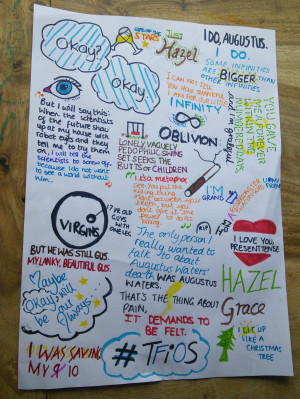 Okay?
Okay
STARS
JUST
Hazel
I DO, AUGUSTUS.
I DO.
SOME INFINITIES
ARE BIGGER THAN
OTHER INFINITIES
I CAN NOT TELL
YOU HOW THANKFUL
I AM FOR OUR LITTLE
INFINITY
YOU GAVE
ME A FOREVER
WITHIN THE
NUMBERED DAYS
and I'm grateful
But I will say this:
When the scientists
of the future show
up at my house with
robot eyes and they
tell me to try them
on, I will tell the
scientists to screw off,
because I do not want
to see a world without
him.
LONELY, VAGUELY
PEDOPHILIC SWING
SET SEEKS THE
BUTTS OF CHILDREN
OBLIVION
It's a metaphor
See: You put the
killing thing
right between your
teeth, but you
don't give it the
power to do its
killing
I'M
GRAND
VIRGINS
17 YR OLD
GUYS
WITH ONE LEG
BUT HE WAS STILL GUS.
MY LANKY, BEAUTIFUL GUS.
The only person I
really wanted to
talk to about
Augustus Waters'
death WAS AUGUSTUS
WATERS.
I LOVE YOU,
PRESENT TENSE
Maybe
Okay will
be our
Always
THAT'S THE THING ABOUT
PAIN,
IT DEMANDS TO
BE FELT.
HAZEL
Grace
I LIT UP
LIKE A
CHRISTMAS
TREE
I WAS SAVING
MY 10
#TFiOS